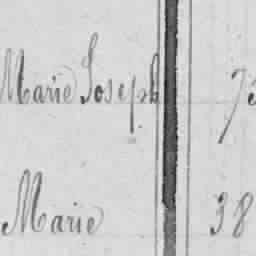 Marie Joseph 73
Marie 38